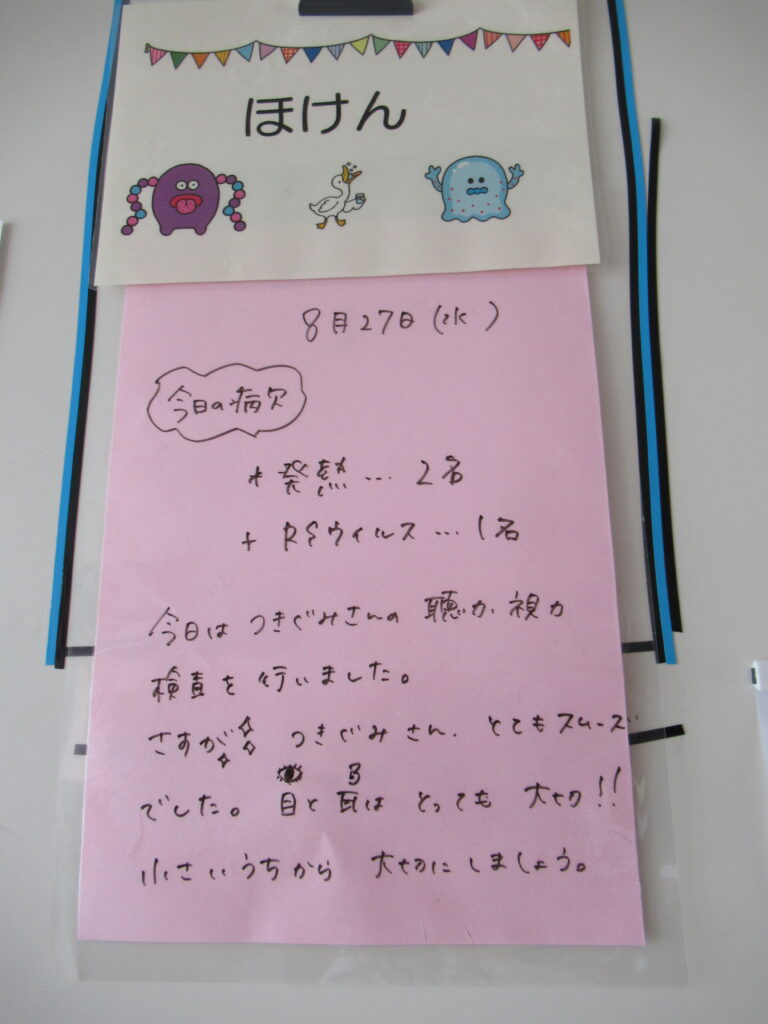 ほけん
8月27日(水)
今日の病欠
* 発熱… 2名
+ RSウイルス… 1名
今日は つきぐみさんの 聴力、視力
検査を 行いました。
さすが つきぐみさん。とてもスムーズ
でした。目と耳は とっても 大切!!
小さいうちから 大切にしましょう。